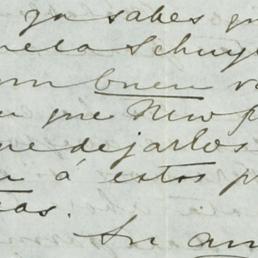 ya sabes qu
uela Schuyl
buen
que New
ue dejarlos
á estos p
as.
Su am